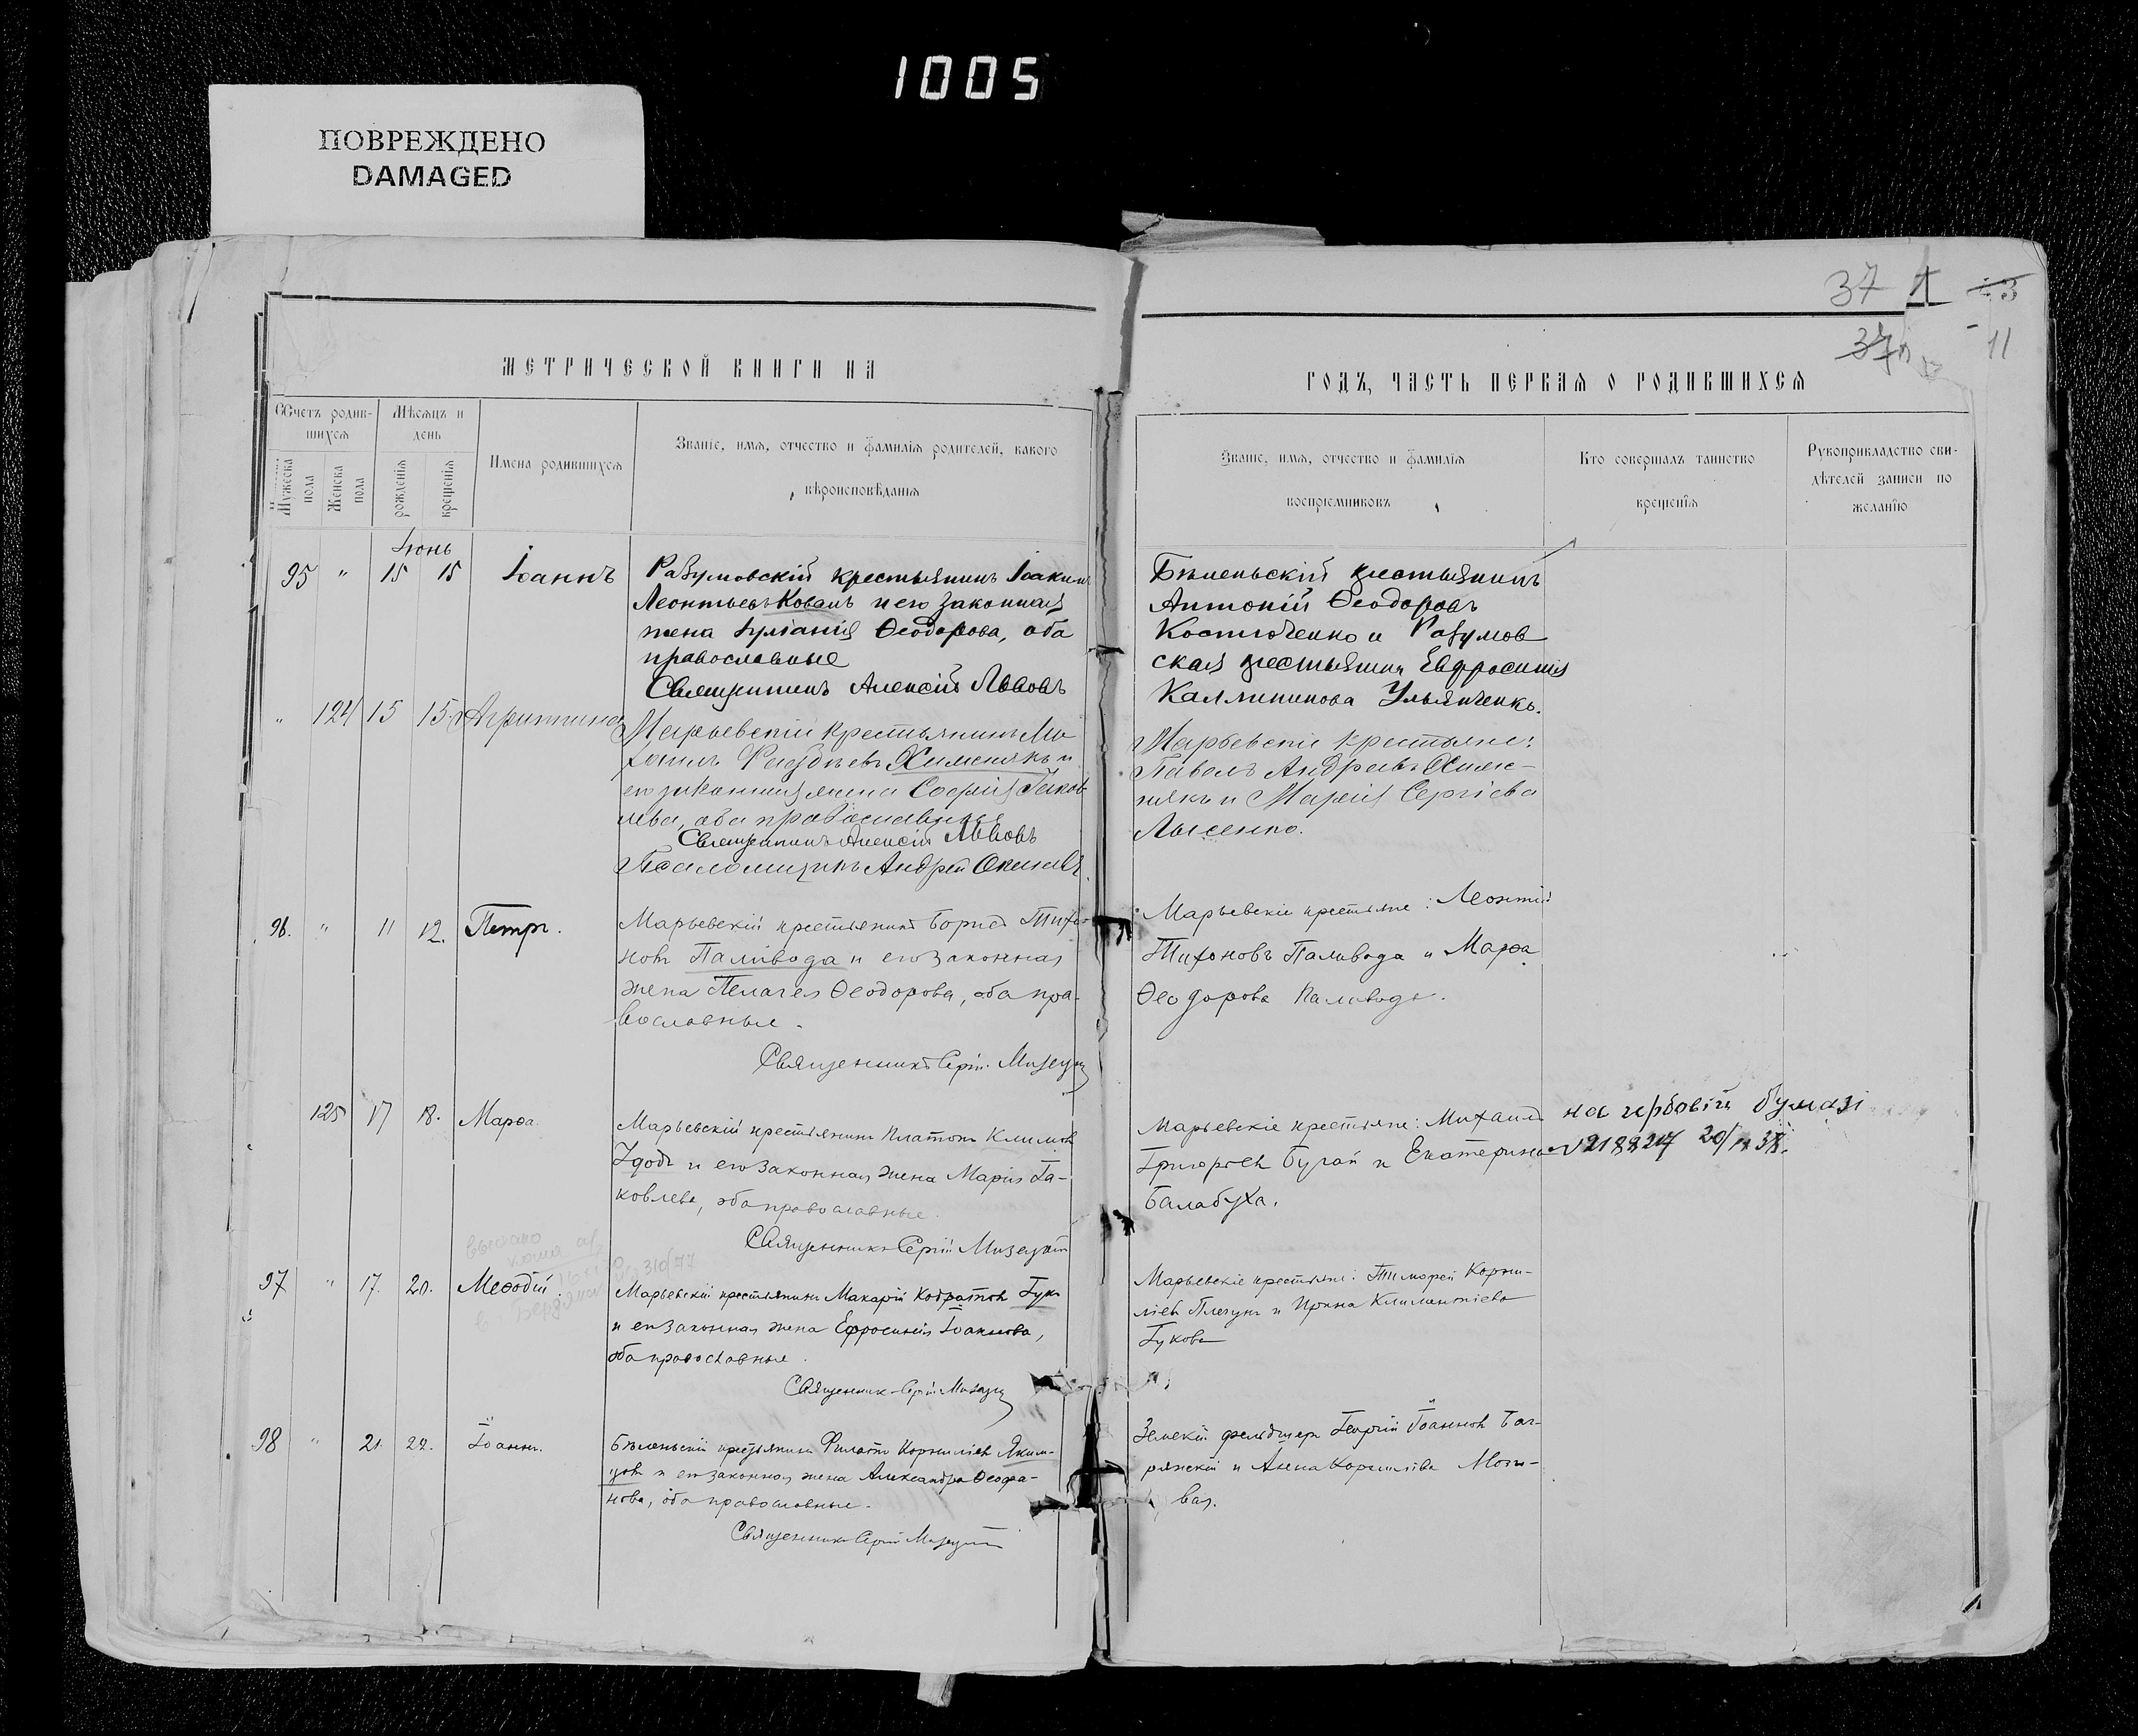 1005
ПОВРЕЖДЕНО
DAMAGED
37
11
МЕТРИЧЕСКОЙ КНИГИ НА
ГОДЪ, ЧАСТЬ ПЕРВАЯ О РОДИВШИХСЯ
Счетъ родив-
шихся
Мѣсяцъ и
день
Мужеска пола
Женска пола
рожденія
крещенія
Имена родившихся
Званіе, имя, отчество и фамилія родителей, какого
вѣроисповѣданія
Званіе, имя, отчество и фамилія
воспріемниковъ
Кто совершалъ таинство
крещенія
Рукоприкладство сви-
дѣтелей записи по
желанію
Іюнь
95 " 15 15 Іоаннъ
Разумовскій крестьянинъ Іоакимъ
Леонтьевъ Коваль и его законная
жена Іуліанія Ѳеодорова, оба
православные
Священникъ Алексій Львовъ
Бѣленьскій крестьянинъ
Антоній Ѳеодоровъ
Костюченко и Разумов
ская крестьянка Евфросинія
Каллиникова Ульянченко.
" 124 15 15 Агриппина
Марьевскій крестьянинъ Ми
хаилъ Хименякъ и
его законная жена Софія Іаков
лева, оба православные
Священникъ Алексій Львовъ
Псаломщикъ Андрей
Марьевскіе крестьяне:
Павелъ Андреевъ Химе-
някъ и Марія Сергіева
Лысенко.
96. " 11 12. Петръ.
Марьевскій крестьянинъ Борисъ Тихо
новъ Паливода и его законная
жена Пелагея Ѳеодорова, оба пра-
вославные.
Священникъ Сергій
Марьевскіе крестьяне: Леонтій
Тихоновъ Паливода и Марѳа
Ѳеодорова Паливода.
125 17 18. Марѳа.
Марьевскій крестьянинъ Платонъ Климовъ
и его законная жена Марія Іа-
ковлева, оба православные.
Священникъ Сергій
Марьевскіе крестьяне: Михаилъ
Григорьевъ Бугай и Екатерина
Балабуха.
на гербовій бумазі
97 " 17. 20. Меѳодій.
Марьевскій крестьянинъ Макарій Кодратовъ Гукъ
и его законная жена Ефросинія Іоакимова,
оба православные.
Священникъ Сергій
Марьевскіе крестьяне: Тимофей Корни-
ліевъ и Ирина Климентіева
Гукова
98 " 21. 22. Іоаннъ.
Бѣленьскій крестьянинъ Филаѳъ Корниліевъ Яким-
цовъ и его законная жена Александра Ѳеофа-
нова, оба православные.
Священникъ Сергій
Земскій фельдшеръ Георгій Іоанновъ Баг-
рянскій и Анна Корниліева
вая.